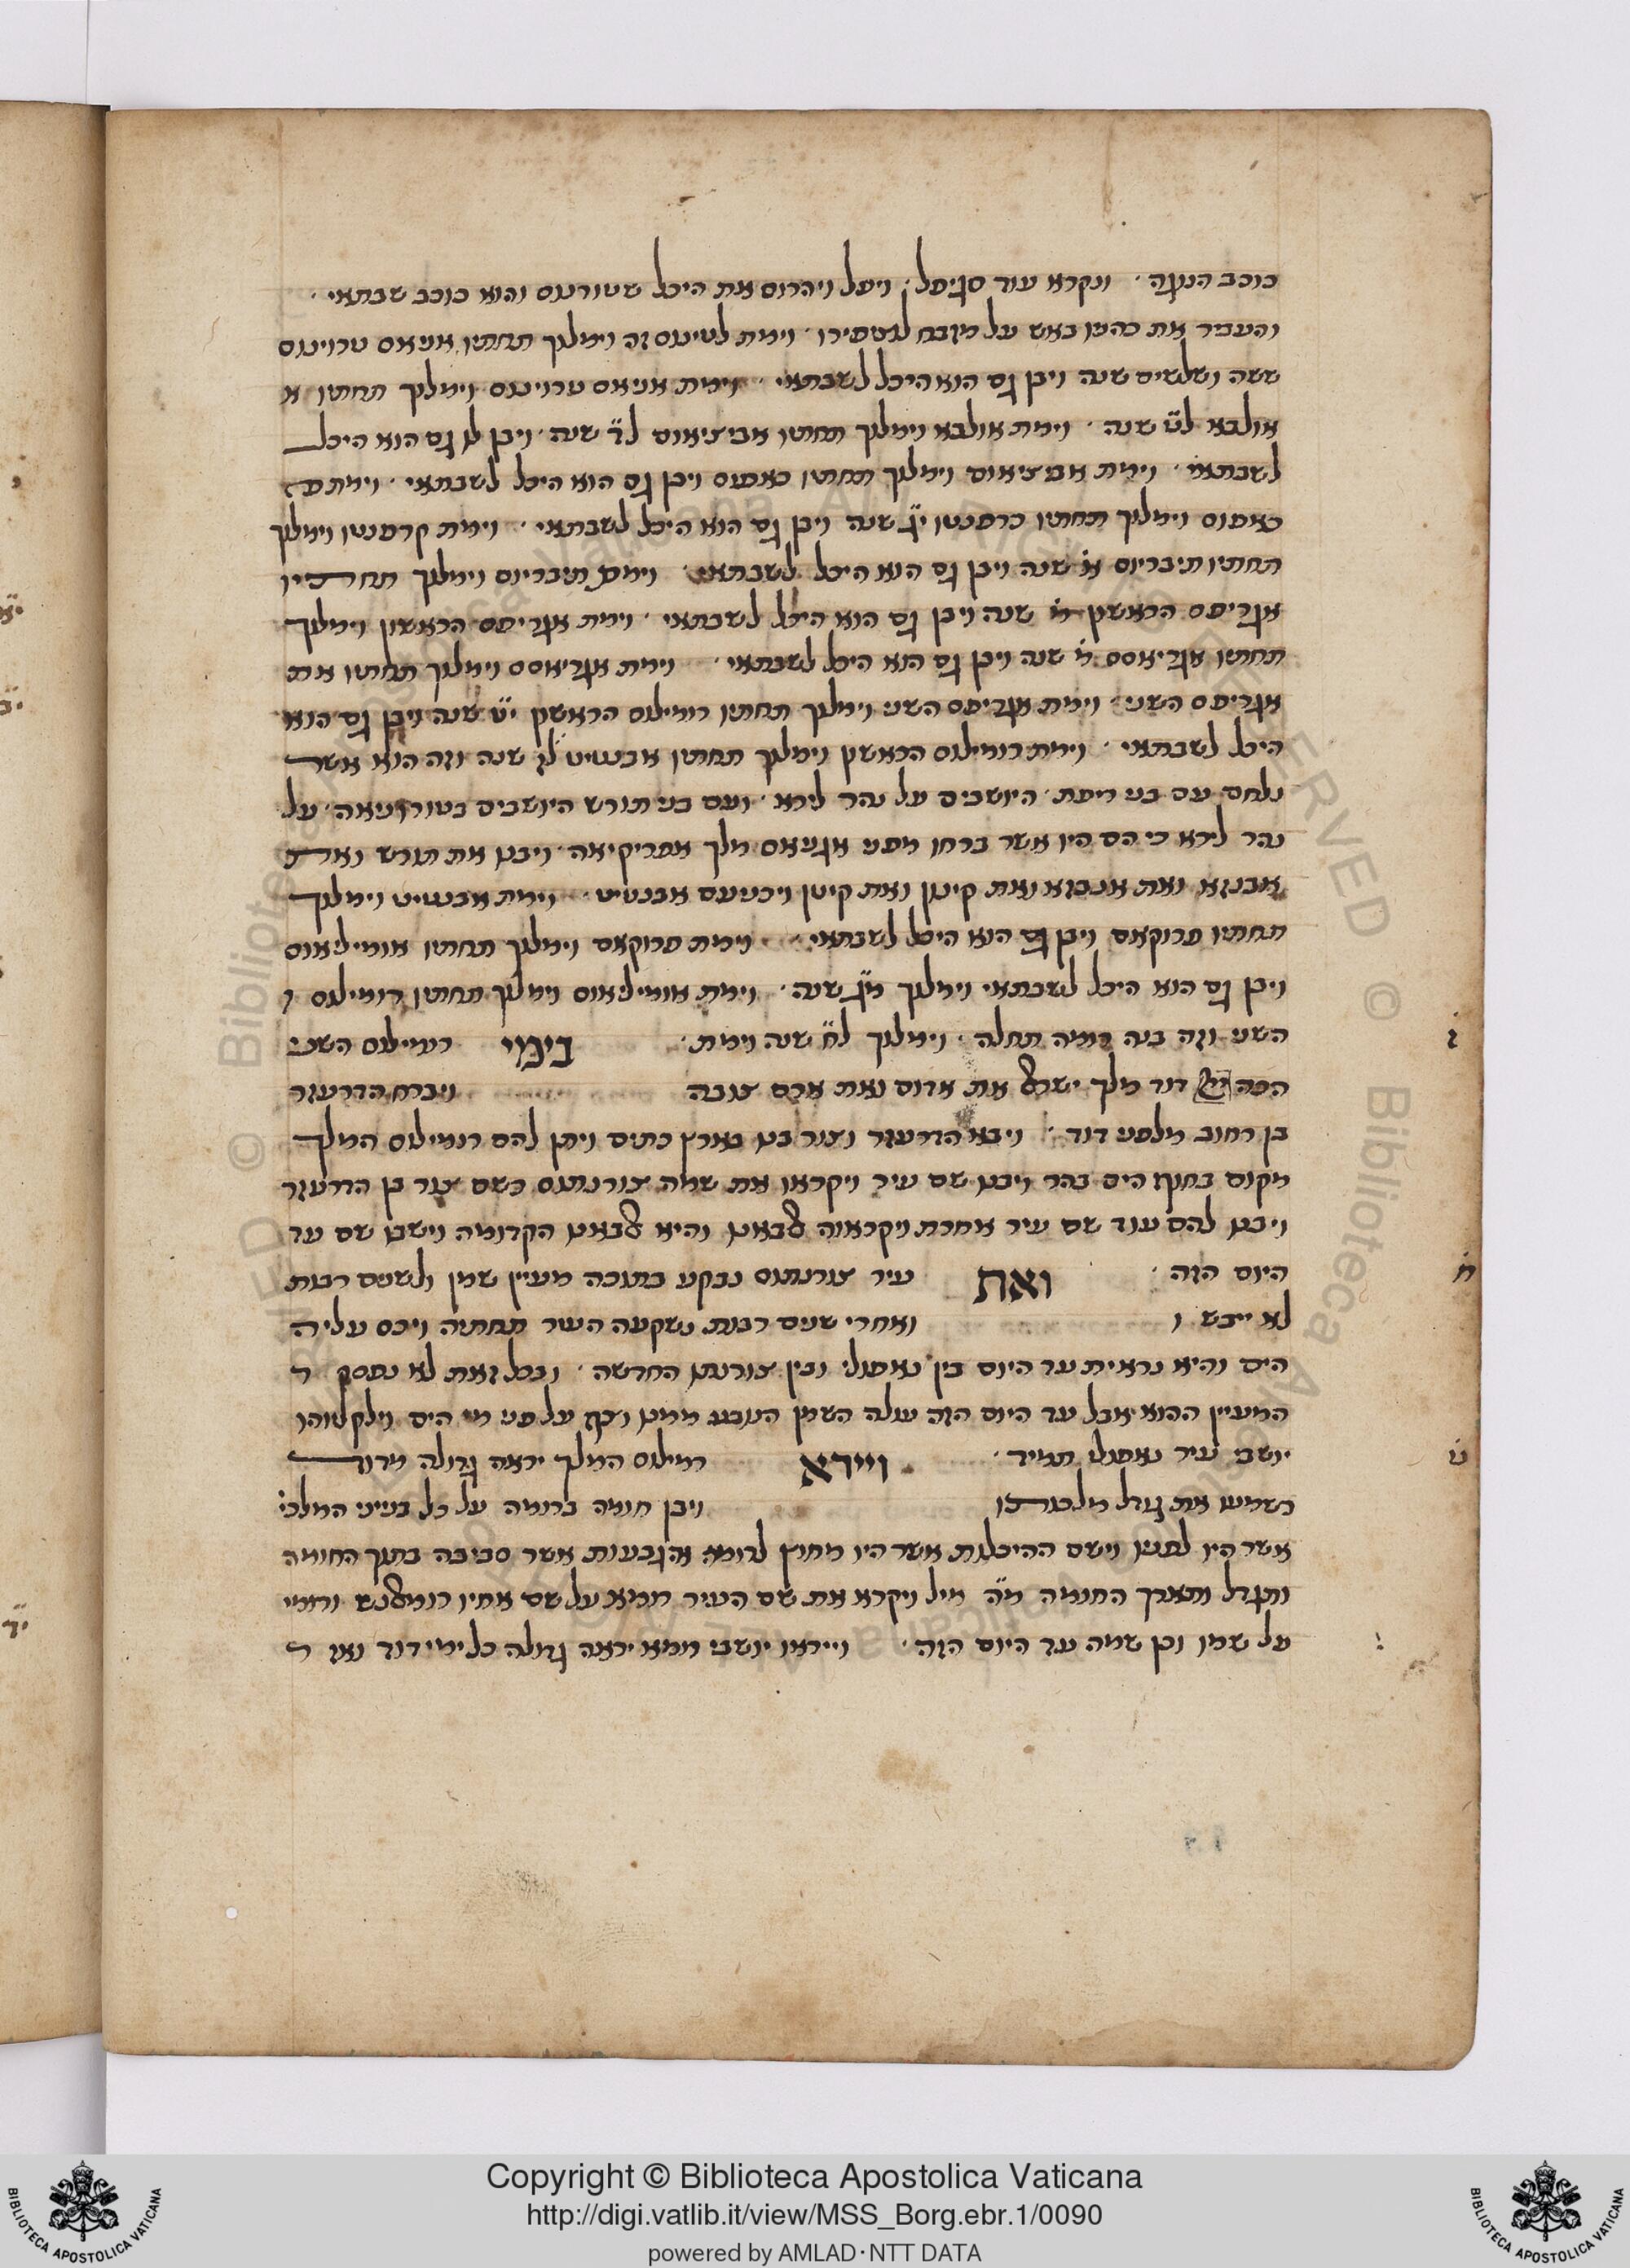 כוכב הנוגה ונקרא עוד סגיפל ויפל ויהרוס את היכל שטורנוס והוא כוכב שבתאי
והעביר את כהניו באש על מזבח וימת לטינוס זה וימלוך תחתיו אניאס טרוינוס
ששה ושלשים שנה ויבן גם הוא היכל לשבתאי וימת אניאס טרוינוס וימלוך תחתיו א
אולבא ל״ט שנה וימת אולבא וימלוך תחתיו אביציאוס כ״ד שנה ויבן לו גם הוא היכל
לשבתאי וימת אביציאוס וימלוך תחתיו כאפוס ויבן גם הוא היכל לשבתאי וימת
כאפוס וימלוך תחתיו כרפנטו י״ג שנה ויבן גם הוא היכל לשבתאי וימת קרפנטו וימלוך
תחתיו תיבריוס ח׳ שנה ויבן גם הוא היכל לשבתאי וימת תיבריוס וימלוך תחתיו
אגריפס הראשון מ׳ שנה ויבן גם הוא היכל לשבתאי וימת אגריפס הראשון וימלוך
תחתיו שנה ויבן גם הוא היכל לשבתאי וימת וימלוך תחתיו את
אגריפס השני וימת אגריפס השני וימלוך תחתיו רומילוס הראשון י״ט שנה ויבן גם הוא
היכל לשבתאי וימת רומילוס הראשון וימלוך תחתיו אבנטינו ל״ז שנה וזה הוא אשר
נלחם עם בני ריפת היושבים על נהר לירא ועם בני תורש היושבים על
נהר לירא כי הם היו אשר ברחו מפני אגניאס מלך אפריקיאה ויבנו את תורש ואת
וימת וימלוך
תחתיו פרוקאס ויבן גם הוא היכל לשבתאי וימת פרוקאס וימלוך תחתיו אומיליאוס
ויבן גם הוא היכל לשבתאי וימלוך מ״ג שנה וימת אומיליאוס וימלוך תחתיו רומילוס
השני וזה בנה רומה תחלה וימלוך ל״ח שנה וימת בימי רומילוס השני
הכה דוד מלך ישראל את אדום ואת ארם צובה ויברח הדרעזר
בן רחוב מלפני דוד ויבא הדרעזר וצור בנו בארץ כתים ויתן להם רומילוס המלך
מקום בחוף הים בהר ויבנו שם עיר ויקראו את שמה צורנתוס כשם צור בן הדרעזר
ויבנו להם עוד שם עיר אחרת ויקראוה אלבאנו והיא אלבאנו הקדומה וישבו שם עד
היום הזה ואת עיר צורנתוס נבקע בתוכה מעיין שמן ולשנים רבות
לא ייבש ו ואחרי שנים רבות נשקעה העיר תחתיה ויכס עליה
הים והיא נראית עד היום בין נאפולי ובין צורנתו החדשה ובכל זאת לא נפסק ה
המעיין ההוא אבל עד היום הזה עולה השמן הנובע ממנו וצף על פני מי הים וילקטוהו
יושבי עיר נאפולי תמיד ויירא רמילוס המלך יראה גדולה מדוד
בשמעו את גודל מלכותו ויבן חומה ברומה על כל בנייני המלכי׳
אשר היו לפניו וישם ההיכלות אשר היו מחוץ לרומא והגבעות אשר סביבה בתוך החומה
ותגדל ותארך החומה מ״ה מיל ויקרא את שם העיר רומא על שם
על שמו וכן שמה עד היום הזה וייראו יושבי רומא יראה גדולה כל ימי דוד ואז
Copyright © Biblioteca Apostolica Vaticana
http://digi.vatlib.it/view/MSS_Borg.ebr.1/0090
powered by AMLAD·NTT DATA
BIBLIOTECA APOSTOLICA VATICANA
BIBLIOTECA APOSTOLICA VATICANA